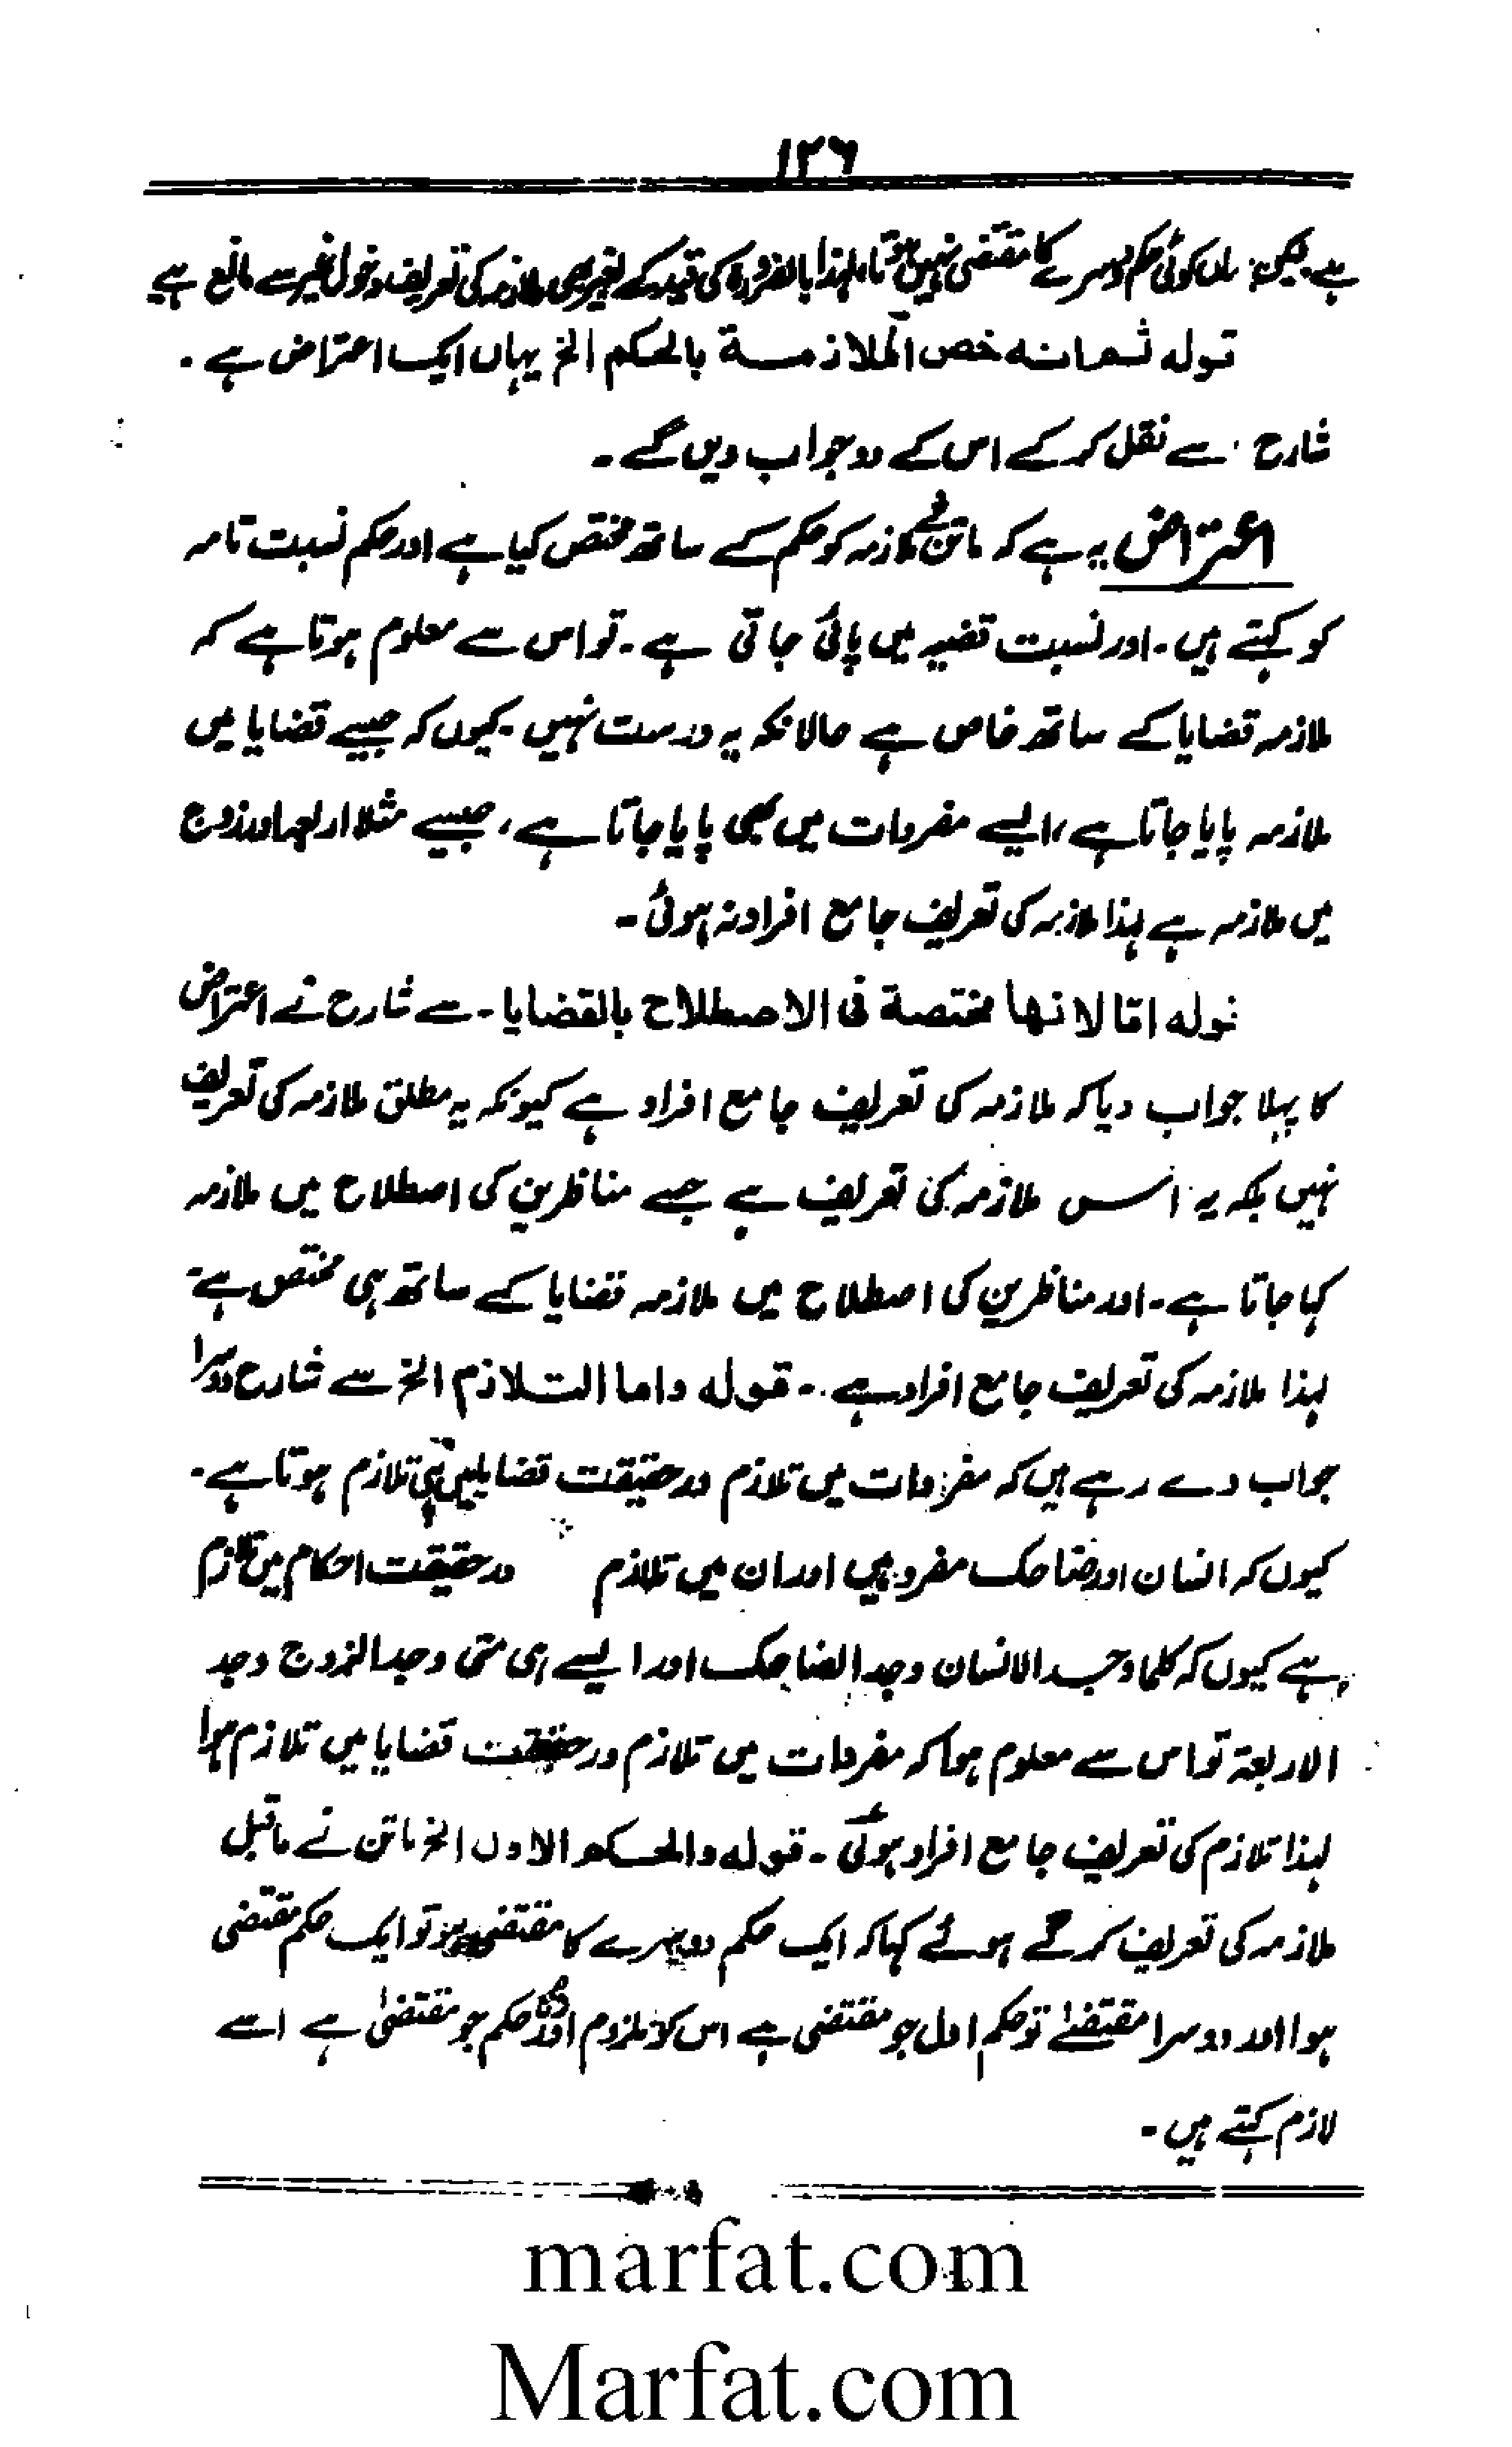 ۱۳۶
ہے۔ لیکن یہاں کوئی حکم دوسرے کا مقتضی نہیں ہوتا، لہذا بالضرورۃ کی قید کے بغیر بھی ملازمہ کی تعریف دخول غیر سے مانع ہے
قوله ثم انه خص الملازمة بالحكم الخ یہاں ایک اعتراض ہے۔
شارح اسے نقل کر کے اس کے دو جواب دیں گے۔
اعتراض یہ ہے کہ ماتن نے ملازمہ کو حکم کے ساتھ مختص کیا ہے اور حکم نسبت تامہ
کو کہتے ہیں۔ اور نسبت قضیہ میں پائی جاتی ہے۔ تو اس سے معلوم ہوتا ہے کہ
ملازمہ قضایا کے ساتھ خاص ہے حالانکہ یہ درست نہیں۔ کیوں کہ جیسے قضایا میں
ملازمہ پایا جاتا ہے، ایسے مفردات میں بھی پایا جاتا ہے، جیسے مثلا اربعہ اور زوج
میں ملازمہ ہے لہذا ملازمہ کی تعریف جامع افراد نہ ہوئی۔
قوله اما لانها مختصة فى الاصطلاح بالقضايا۔ سے شارح نے اعتراض
کا پہلا جواب دیا کہ ملازمہ کی تعریف جامع افراد ہے کیونکہ یہ مطلق ملازمہ کی تعریف
نہیں بلکہ یہ اس ملازمہ کی تعریف ہے جسے مناظرین کی اصطلاح میں ملازمہ
کہا جاتا ہے۔ اور مناظرین کی اصطلاح میں ملازمہ قضایا کے ساتھ ہی مختص ہے۔
لہذا ملازمہ کی تعریف جامع افراد ہے۔ قوله واما التلازم الخ سے شارح دوسرا
جواب دے رہے ہیں کہ مفردات میں تلازم درحقیقت قضایا میں ہی تلازم ہوتا ہے۔
کیوں کہ انسان اور ضاحک مفرد ہیں اور ان میں تلازم درحقیقت احکام میں تلازم
ہے کیوں کہ کلما وجد الانسان وجد الضاحک اور ایسے ہی متی وجد الزوج وجد
الاربعۃ تو اس سے معلوم ہوا کہ مفردات میں تلازم درحقیقت قضایا میں تلازم ہوا
لہذا تلازم کی تعریف جامع افراد ہوئی۔ قوله والحكم الاول الخ ماتن نے ماقبل
ملازمہ کی تعریف کرتے ہوئے کہا کہ ایک حکم دوسرے کا مقتضی ہو تو ایک حکم مقتضی
ہوا اور دوسرا مقتضیٰ تو حکم اول جو مقتضی ہے اس کو ملزوم اور حکم جو مقتضیٰ ہے اسے
لازم کہتے ہیں۔
marfat.com
Marfat.com